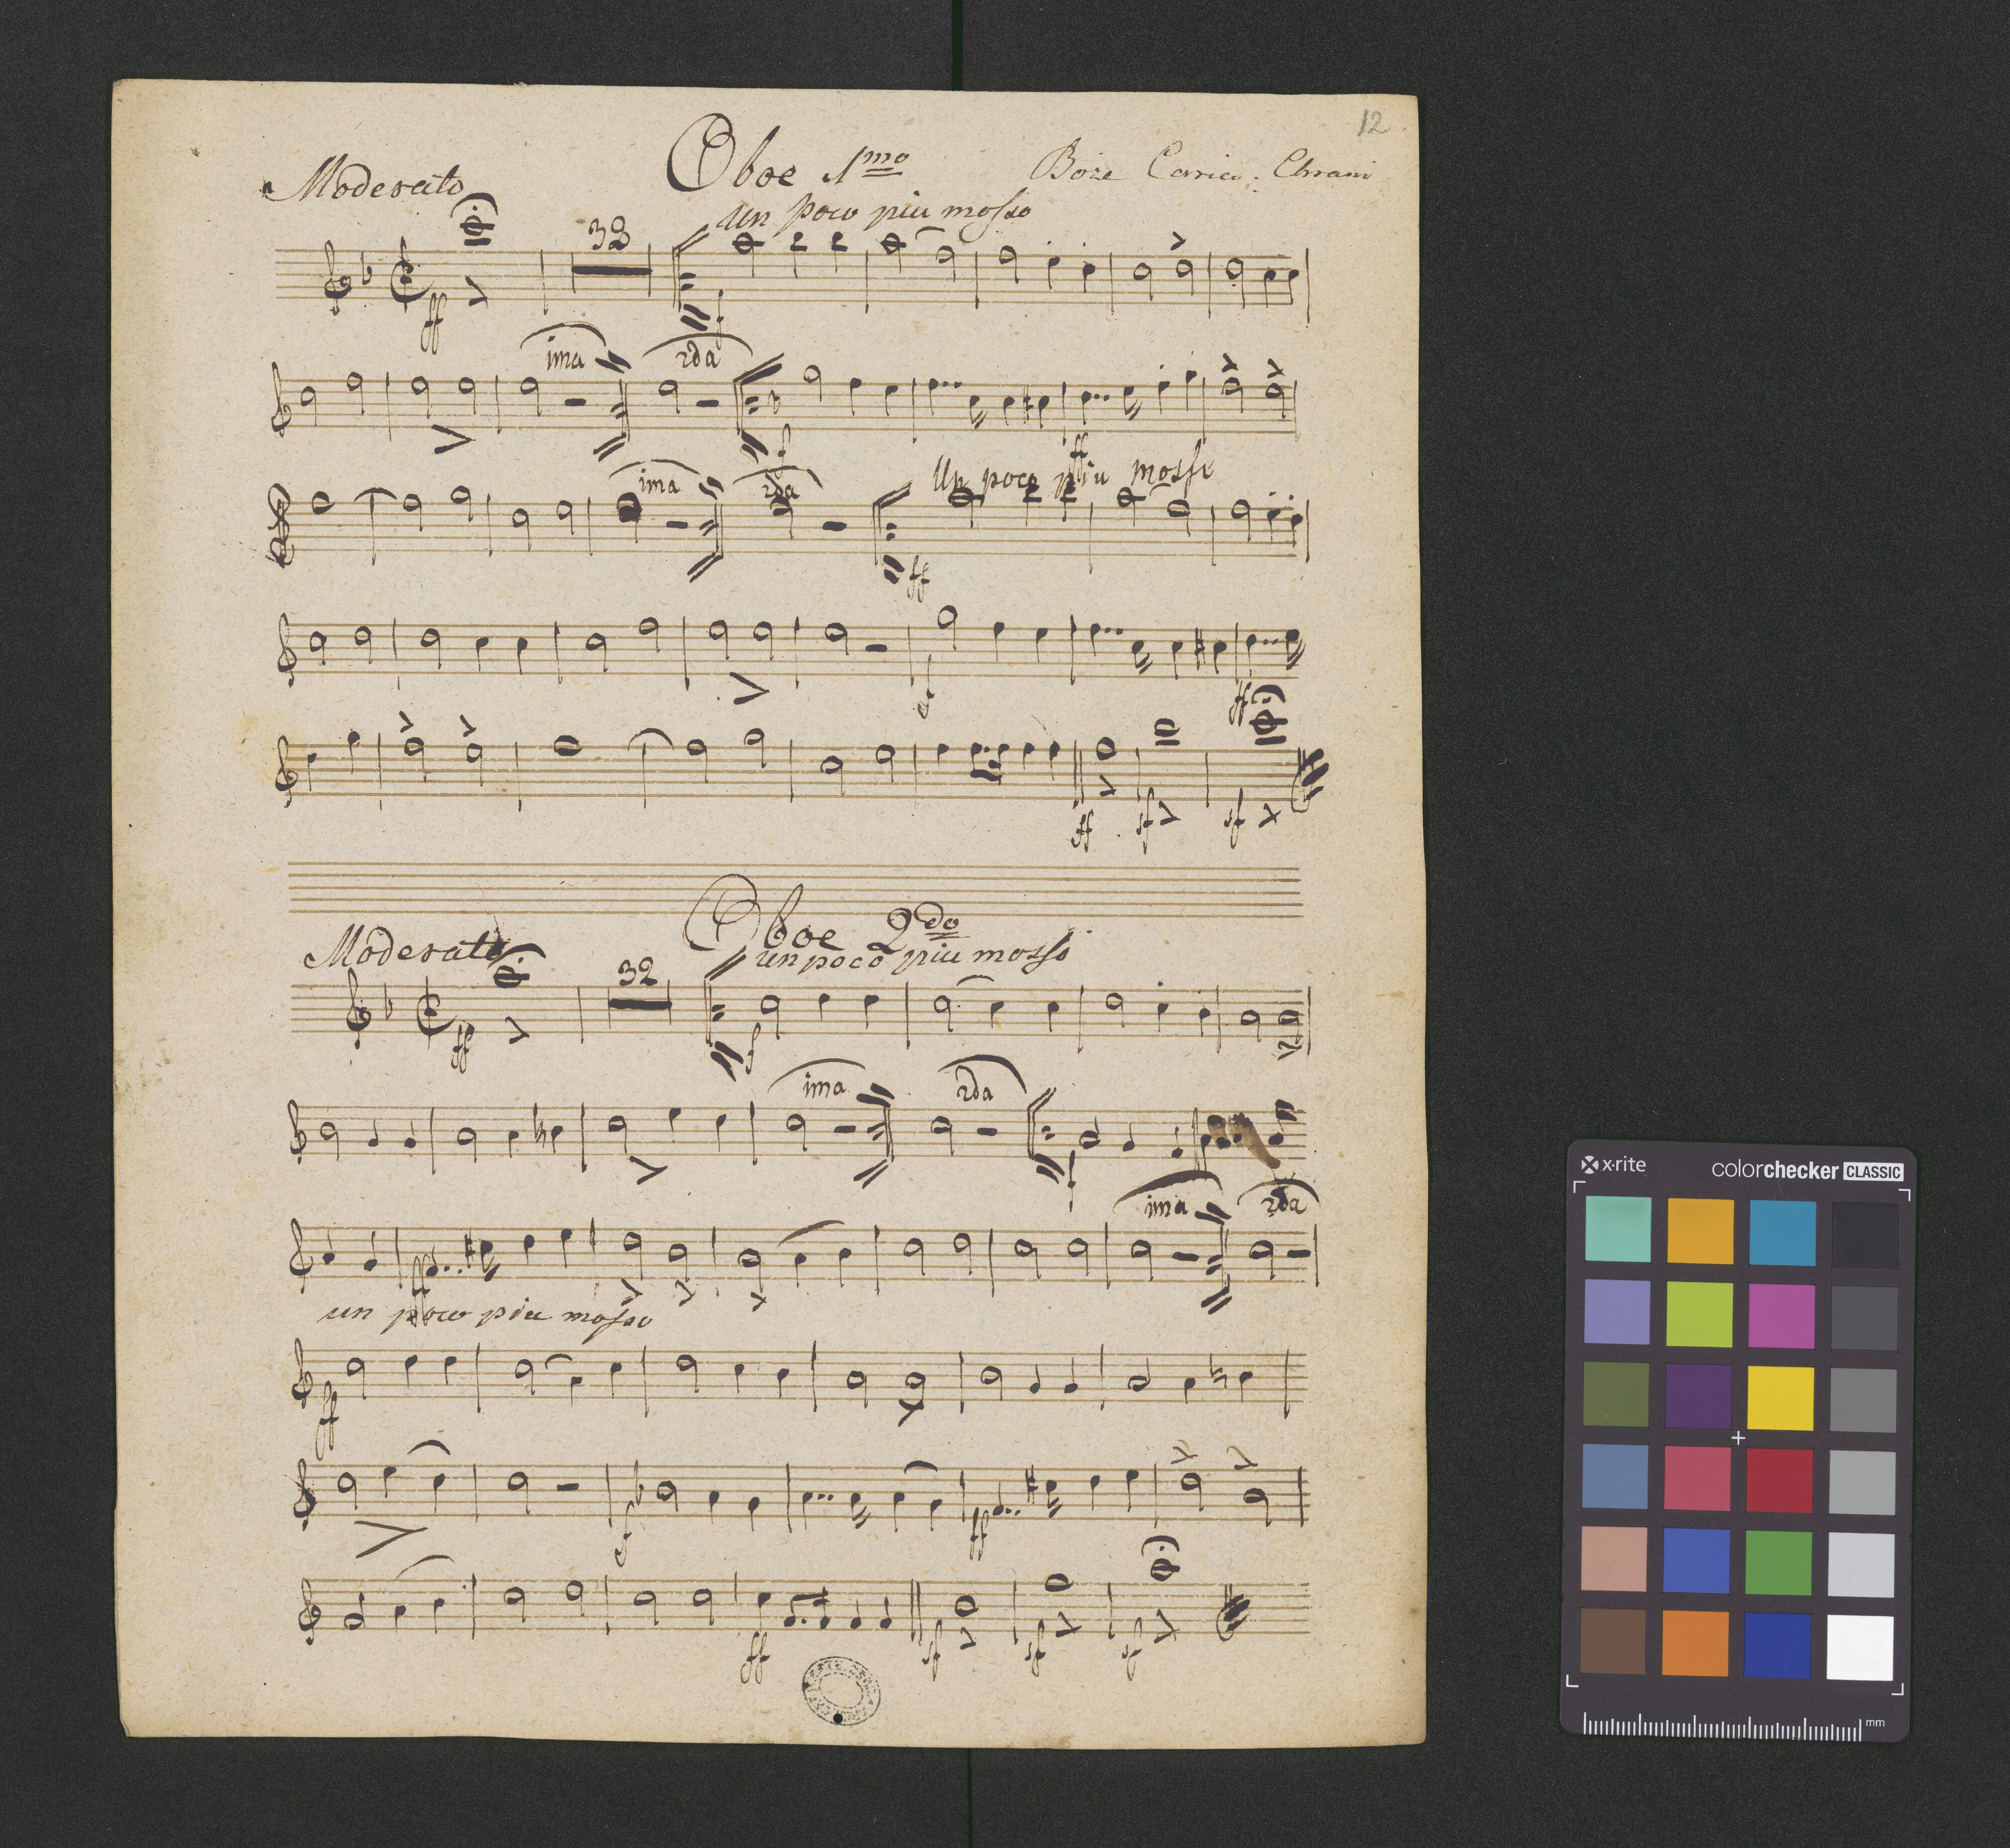 12
Oboe 1mo
Boze Caria. Chrani
Moderato
un poco piu mosso
32
ff
f
ima
2da
f
ff
Un poco piu mosso
ima
2da
ff
f
ff
ff
sf
sf
Oboe 2do
Moderato
un poco piu mosso
32
ff
f
ima
2da
f
ima
2da
ff
un poco piu mosso
ff
f
ff
ff
sf
sf
sf
x·rite
colorchecker CLASSIC
mm